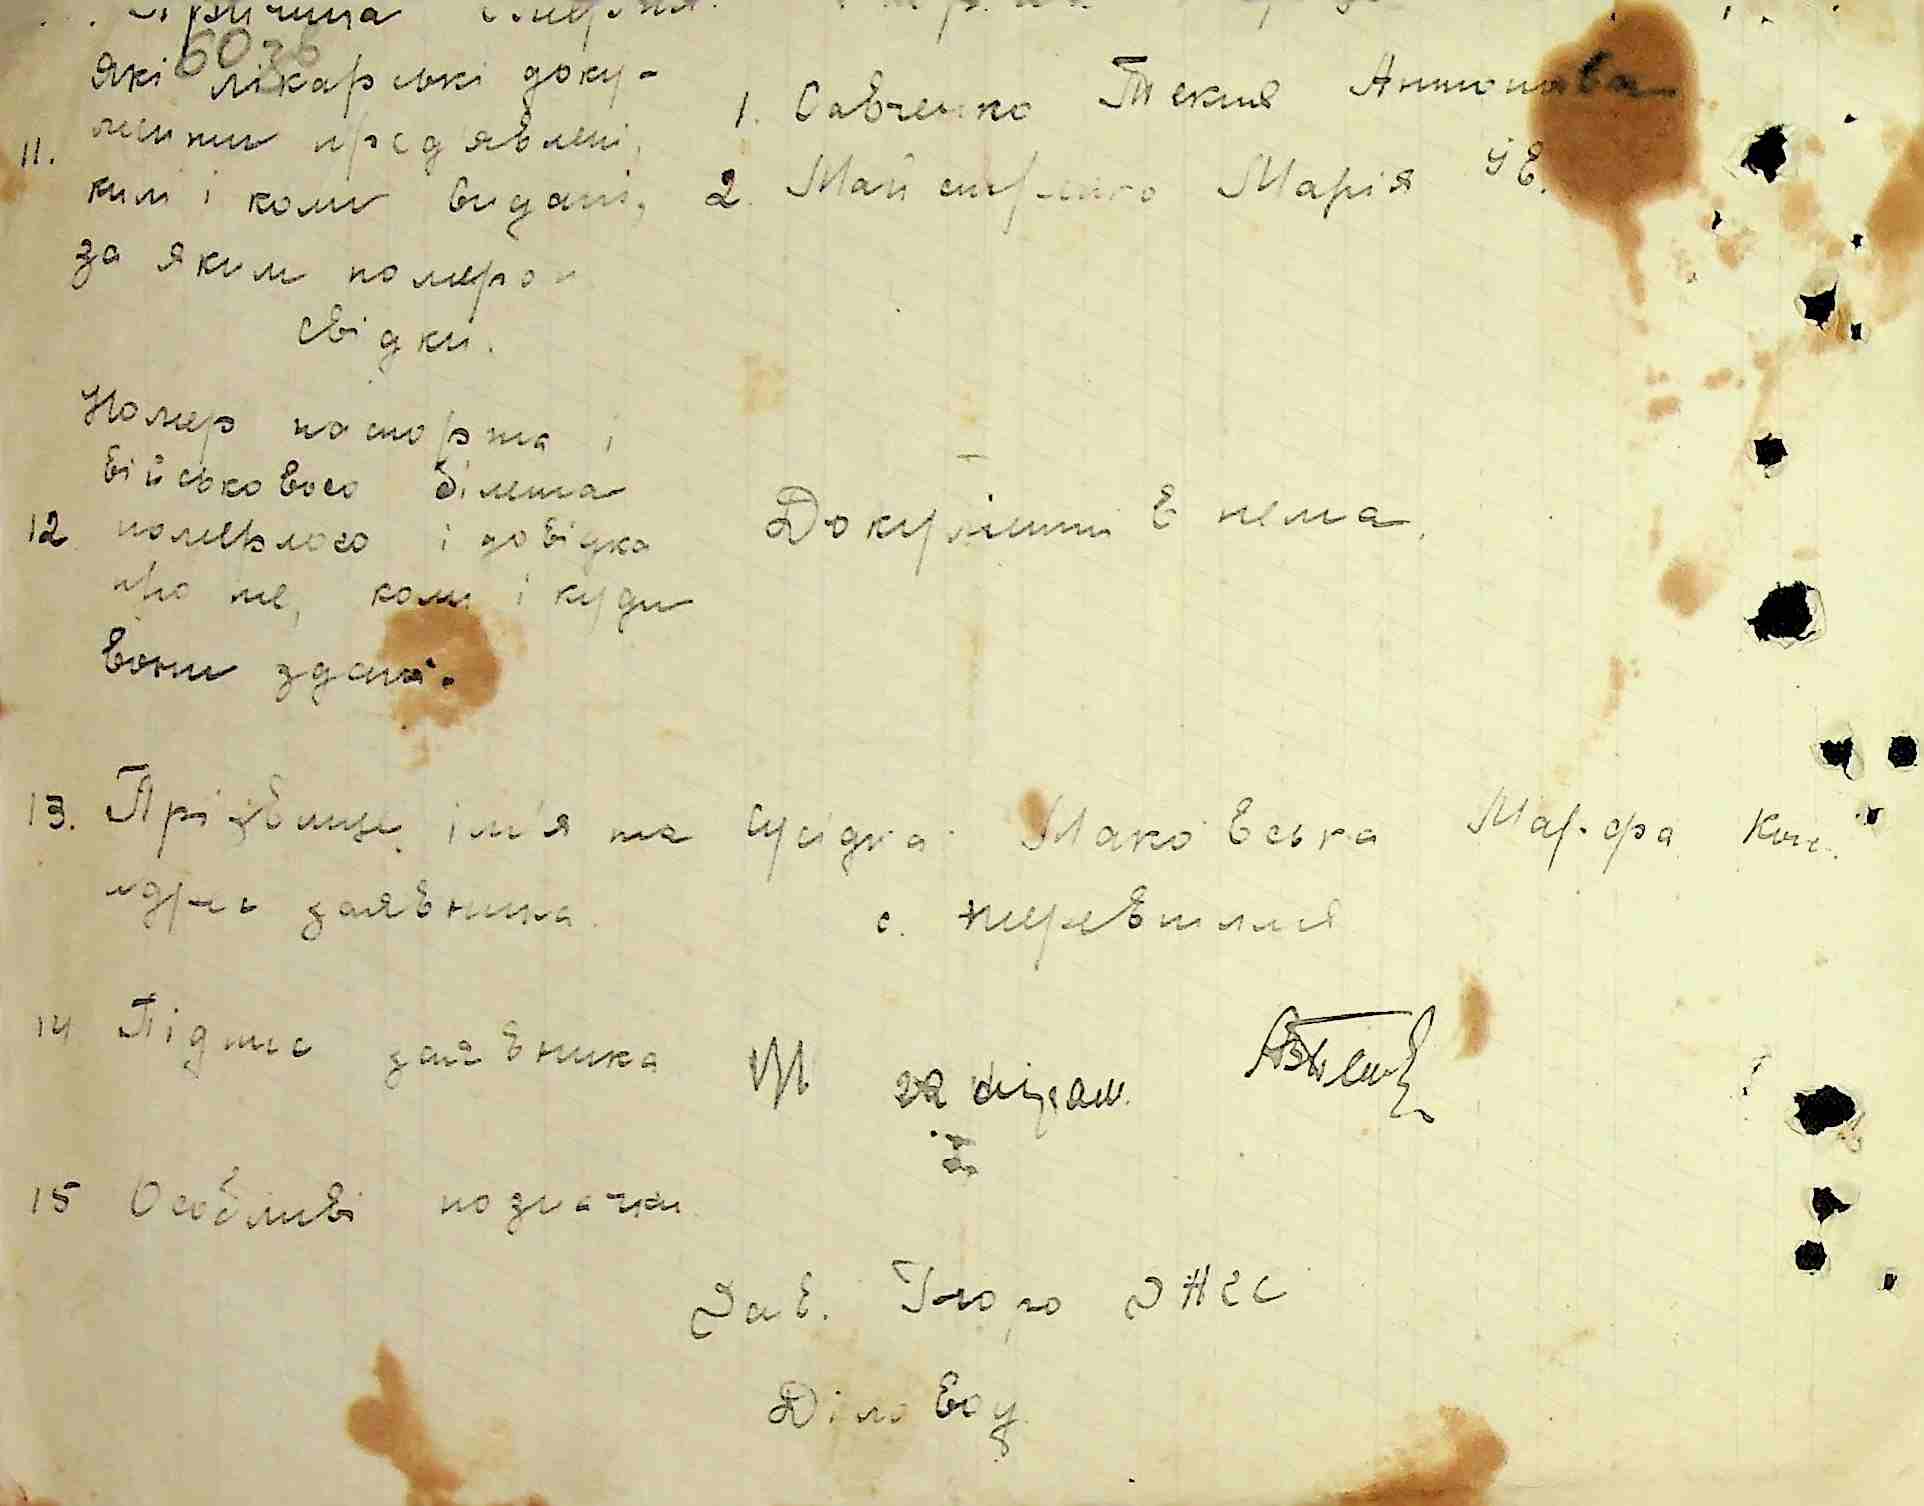 Причина смерти
603
Які лікарські доку-
менти предявлені,
11.
ким і кому видані,
за яким номером
свідки.
1. Савченко Текля Антонова
2. Майстренко Марія УЕ.
Номер паспорта і
військового білета
12 померлого і довідка
про те, коли і куди
вони здані.
Документів нема.
13. Прізвище, ім'я та
адрес заявника.
Сусідка Маковська Марфа Кон.
с.
14 Підпис заявника
за
15 Особливі позначки
Зав. Бюро ЗАГС
Діловод